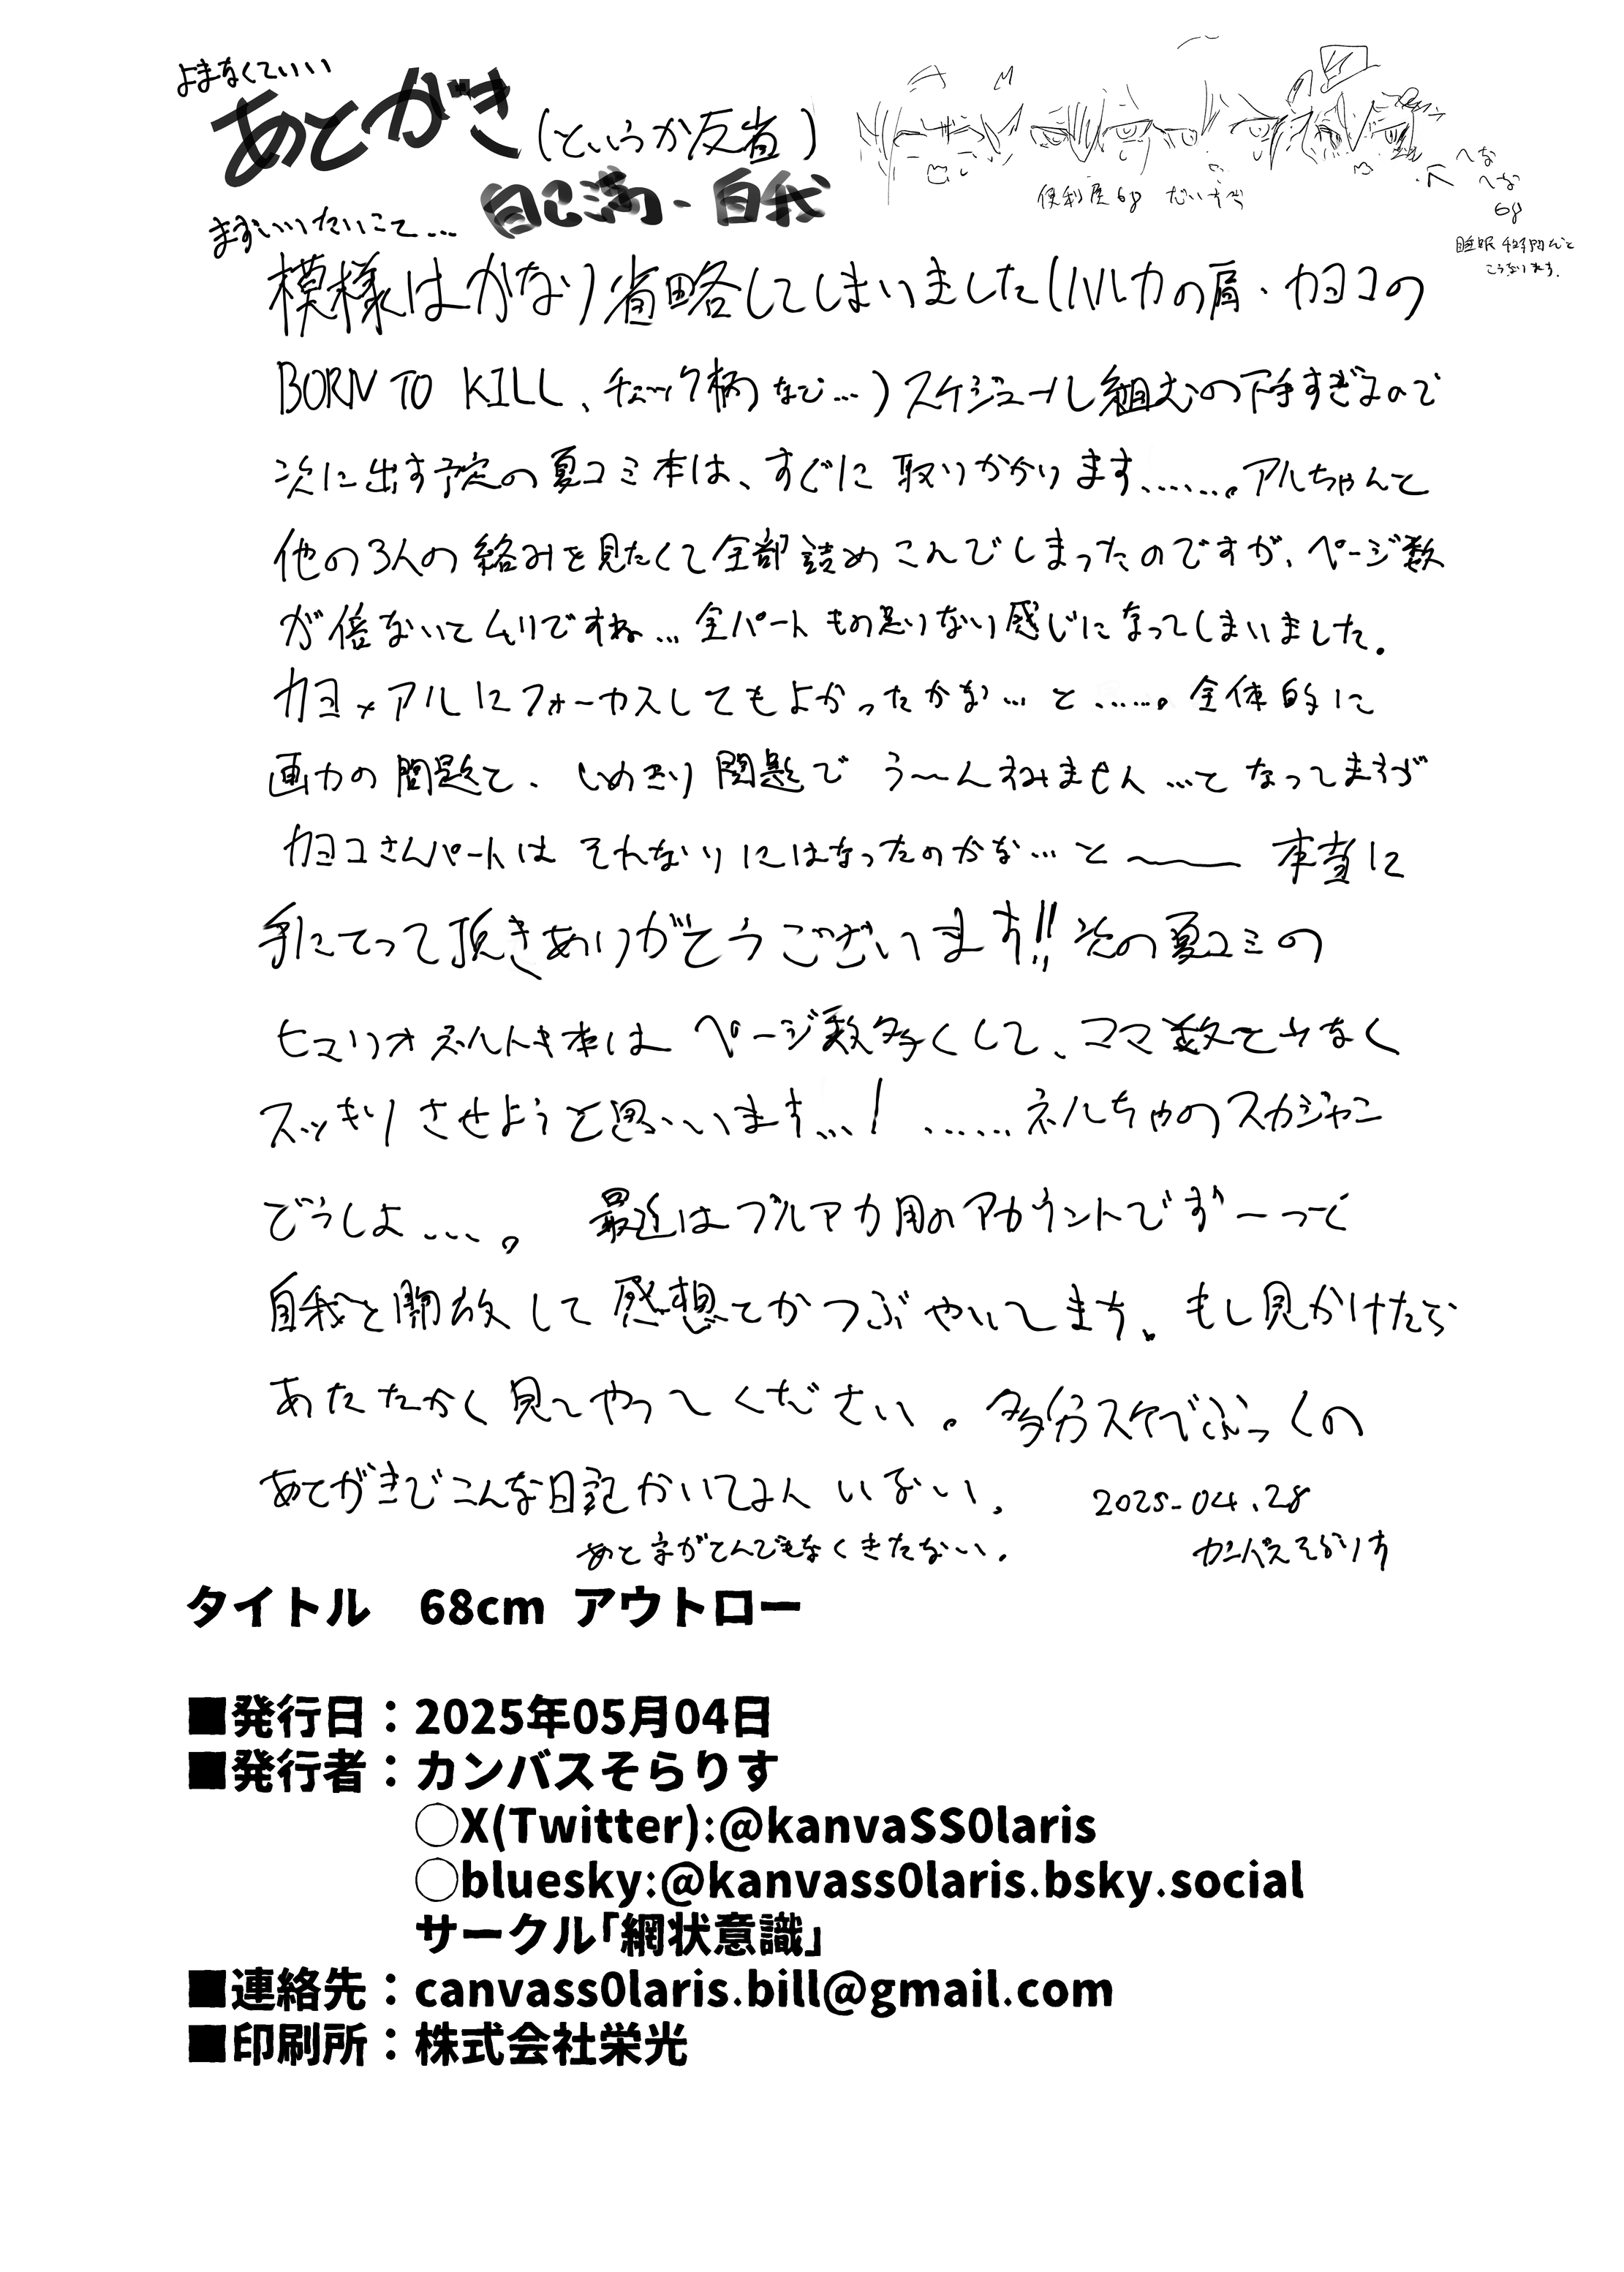 よまなくていい
あとがき(というか反省)
自己満・自我
便利屋68 だいすき
へな
へな
68
睡眠4時間だと
こうなります.
まずいいたいこと…
模様はかなり省略してしまいました(ハルカの肩・カヨコの
BORN TO KILL、チェック柄など…)スケジュール組むの下手すぎるので
次に出す予定の夏コミ本は、すぐに取りかかります……。アルちゃんと
他の3人の絡みを見たくて全部詰めこんでしまったのですが、ページ数
が倍ないとムリですね…全パートもの足りない感じになってしまいました.
カヨ×アルにフォーカスしてもよかったかな…と……。全体的に
画力の問題と、しめきり問題でう〜んすみません…となってますが
カヨコさんパートはそれなりにはなったのかな…と〜〜 本当に
手にとって頂きありがとうございます!!次の夏コミの
ヒマリオネルトキ本はページ数多くして、コマ数を少なく
スッキリさせようと思います…!……ネルちゃのスカジャン
どうしよ…。 最近はブルアカ用のアカウントでずーっと
自我を開放して感想とかつぶやいてます。もし見かけたら
あたたかく見てやってください。多分スケブでぶっくの
あとがきでこんな日記かいてる人いない.
2025-04.28
あと字がとんでもなくきたない.
カンバスそらりす
タイトル 68cm アウトロー
■発行日：2025年05月04日
■発行者：カンバスそらりす
◯X(Twitter):@kanvaSS0laris
◯bluesky:@kanvass0laris.bsky.social
サークル「網状意識」
■連絡先：canvass0laris.bill@gmail.com
■印刷所：株式会社栄光